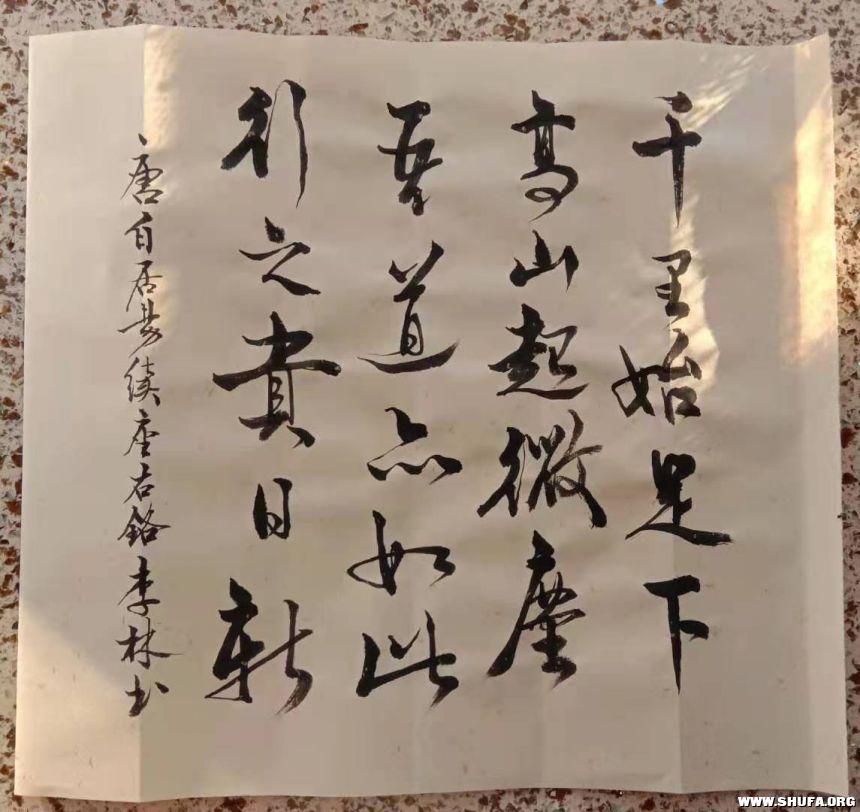 千里始足下
高山起微塵
吾道亦如此
行之貴日新
唐白居易續座右銘李林书
WWW.SHUFA.ORG